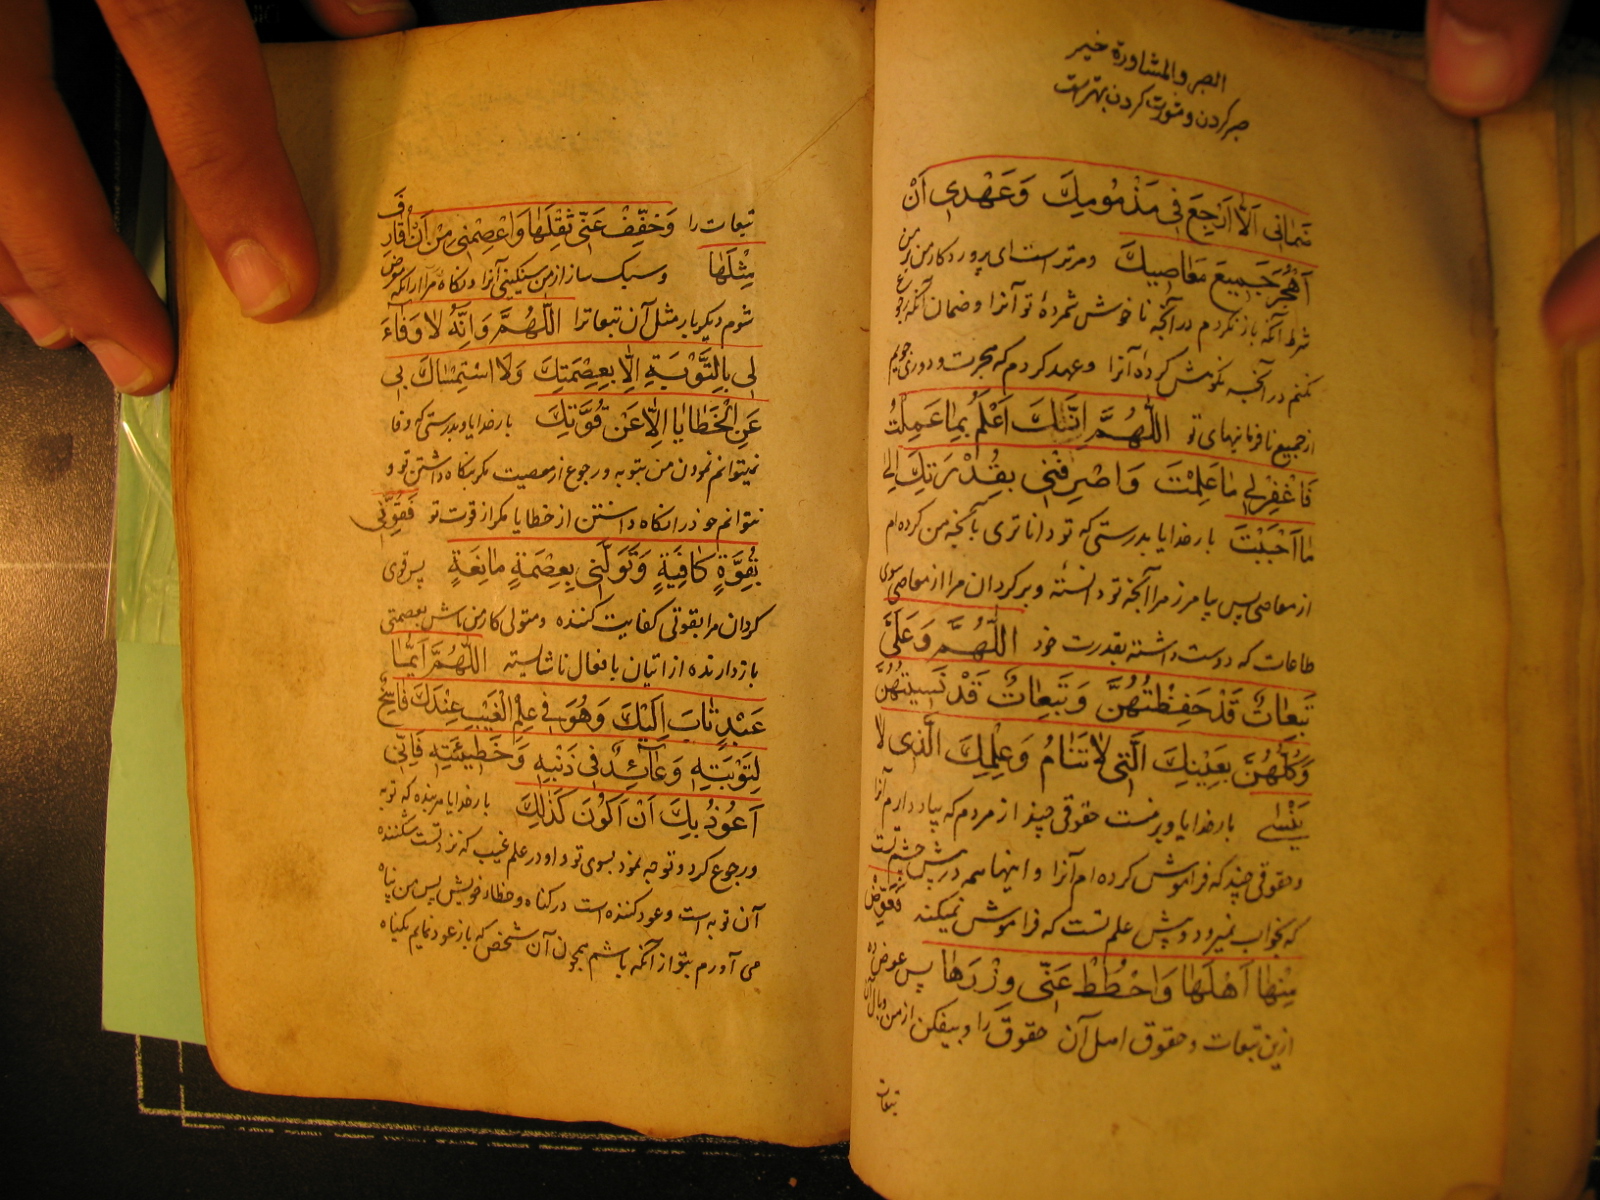 الصبر والمشاورة خیر
صبر کردن و مشورت کردن بهتر است
ضمانی اَلّا اَرْجِعَ فی مَذْمُومِكَ وَعَهْدی اَنْ
اَهْجُرَ جَمیعَ مَعاصیكَ و مر تراست ای پروردکار من بر من
شرط آنکه باز نکردم در آنچه ناخوش شمردهٔ تو آنرا و ضمان آنکه رجوع
نکنم در آنچه نکوهش کردهٔ آنرا و عهد کردم که هجرت و دوری جویم
از جمیع نافرمانیهای تو اَللّهُمَّ اِنَّكَ اَعْلَمُ بِما عَمِلْتُ
فَاغْفِرْلی ما عَلِمْتَ وَاصْرِفْنی بِقُدْرَتِكَ اِلی
ما اَحْبَبْتَ بار خدایا بدرستی که تو داناتری بآنچه من کرده ام
از معاصی پس بیامرز مرا آنچه تو دانستهٔ و برکردان مرا از معاصی بسوی
طاعات که دوست داشتهٔ بقدرت خود اَللّهُمَّ وَعَلَیَّ
تَبِعاتٌ قَدْ حَفِظْتُهُنَّ وَتَبِعاتٌ قَدْ نَسیتُهُنَّ
وَکُلُّهُنَّ بِعَیْنِكَ الَّتی لا تَنامُ وَعِلْمِكَ الَّذی لا
یَنْسی بار خدایا و بر منست حقوقی چند از مردم که بیاد دارم آنرا
و حقوقی چند که فراموش کرده ام آنرا و اینها همه در پیش چشم تست
که بخواب نمیرود و پیش علم تست که فراموش نمیکند فَعَوِّضْ
مِنْها اَهْلَها وَاحْطُطْ عَنّی وِزْرَها پس عوض ده
ازین تبعات و حقوق اهل آن حقوق را و بیفکن از من وبال آن
تبعات
تبعات را وَخَفِّفْ عَنّی ثِقْلَها وَاعْصِمْنی مِنْ اَنْ اُقارِفَ
مِثْلَها و سبک ساز از من سنکینی آنرا و نکاه دار مرا از آنکه معرض
شوم دیکر بار مثل آن تبعاترا اَللّهُمَّ وَاِنَّهُ لا وَفاءَ
لی بِالتَّوْبَةِ اِلّا بِعِصْمَتِكَ وَلَا اسْتِمْساكَ بی
عَنِ الْخَطایا اِلّا عَنْ قُوَّتِكَ بار خدایا و بدرستی که وفا
نمیتوانم نمودن من بتوبه و رجوع از معصیت مکر بنکاه داشتن تو و
نتوانم خود را نکاه داشتن از خطایا مکر از قوت تو فَقَوِّنی
بِقُوَّةٍ کافِیَةٍ وَتَوَلَّنی بِعِصْمَةٍ مانِعَةٍ پس قوی
کردان مرا بقوتی کفایت کننده و متولی کار من باش بعصمتی
باز دارنده از اتیان بافعال ناشایسته اَللّهُمَّ اَیُّما
عَبْدٍ تابَ اِلَیْكَ وَهُوَ فی عِلْمِ الْغَیْبِ عِنْدَكَ فاسِخٌ
لِتَوْبَتِهِ وَعائِدٌ فی ذَنْبِهِ وَخَطیئَتِهِ فَاِنّی
اَعُوذُ بِكَ اَنْ اَکُونَ کَذلِكَ بار خدایا هر بنده که توبه
و رجوع کرد و توجه نمود بسوی تو و او در علم غیب که نزد تست شکننده
آن توبه است و عود کننده است در کناه و خطاء خویش پس من پناه
می آورم بتو از آنکه باشم همچون آن شخص که باز عود نمایم بکناه